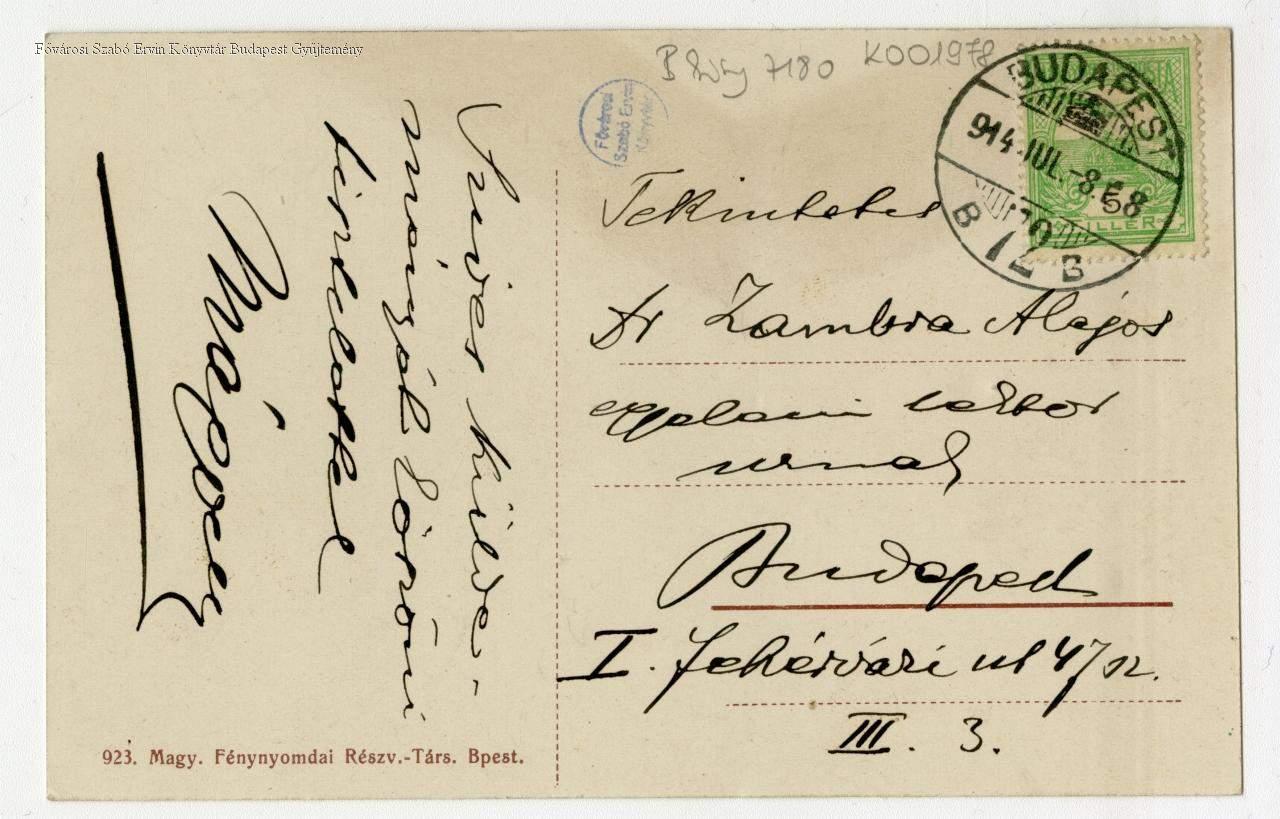 Fővárosi Szabó Ervin Könyvtár Budapest Gyűjtemény
7180 K001978
Fővárosi
Szabó Ervin
Könyvtár
BUDAPEST
914 JUL.-8.
B 72 B
FILLÉR
Szives külde-
ményét köszöni
tisztelettel
Tekintetes
Dr Zambra Alajos
egyetemi lektor
urnak
Budapest
I. Fehérvári ut 47/sz.
III. 3.
923. Magy. Fénynyomdai Részv.-Társ. Bpest.